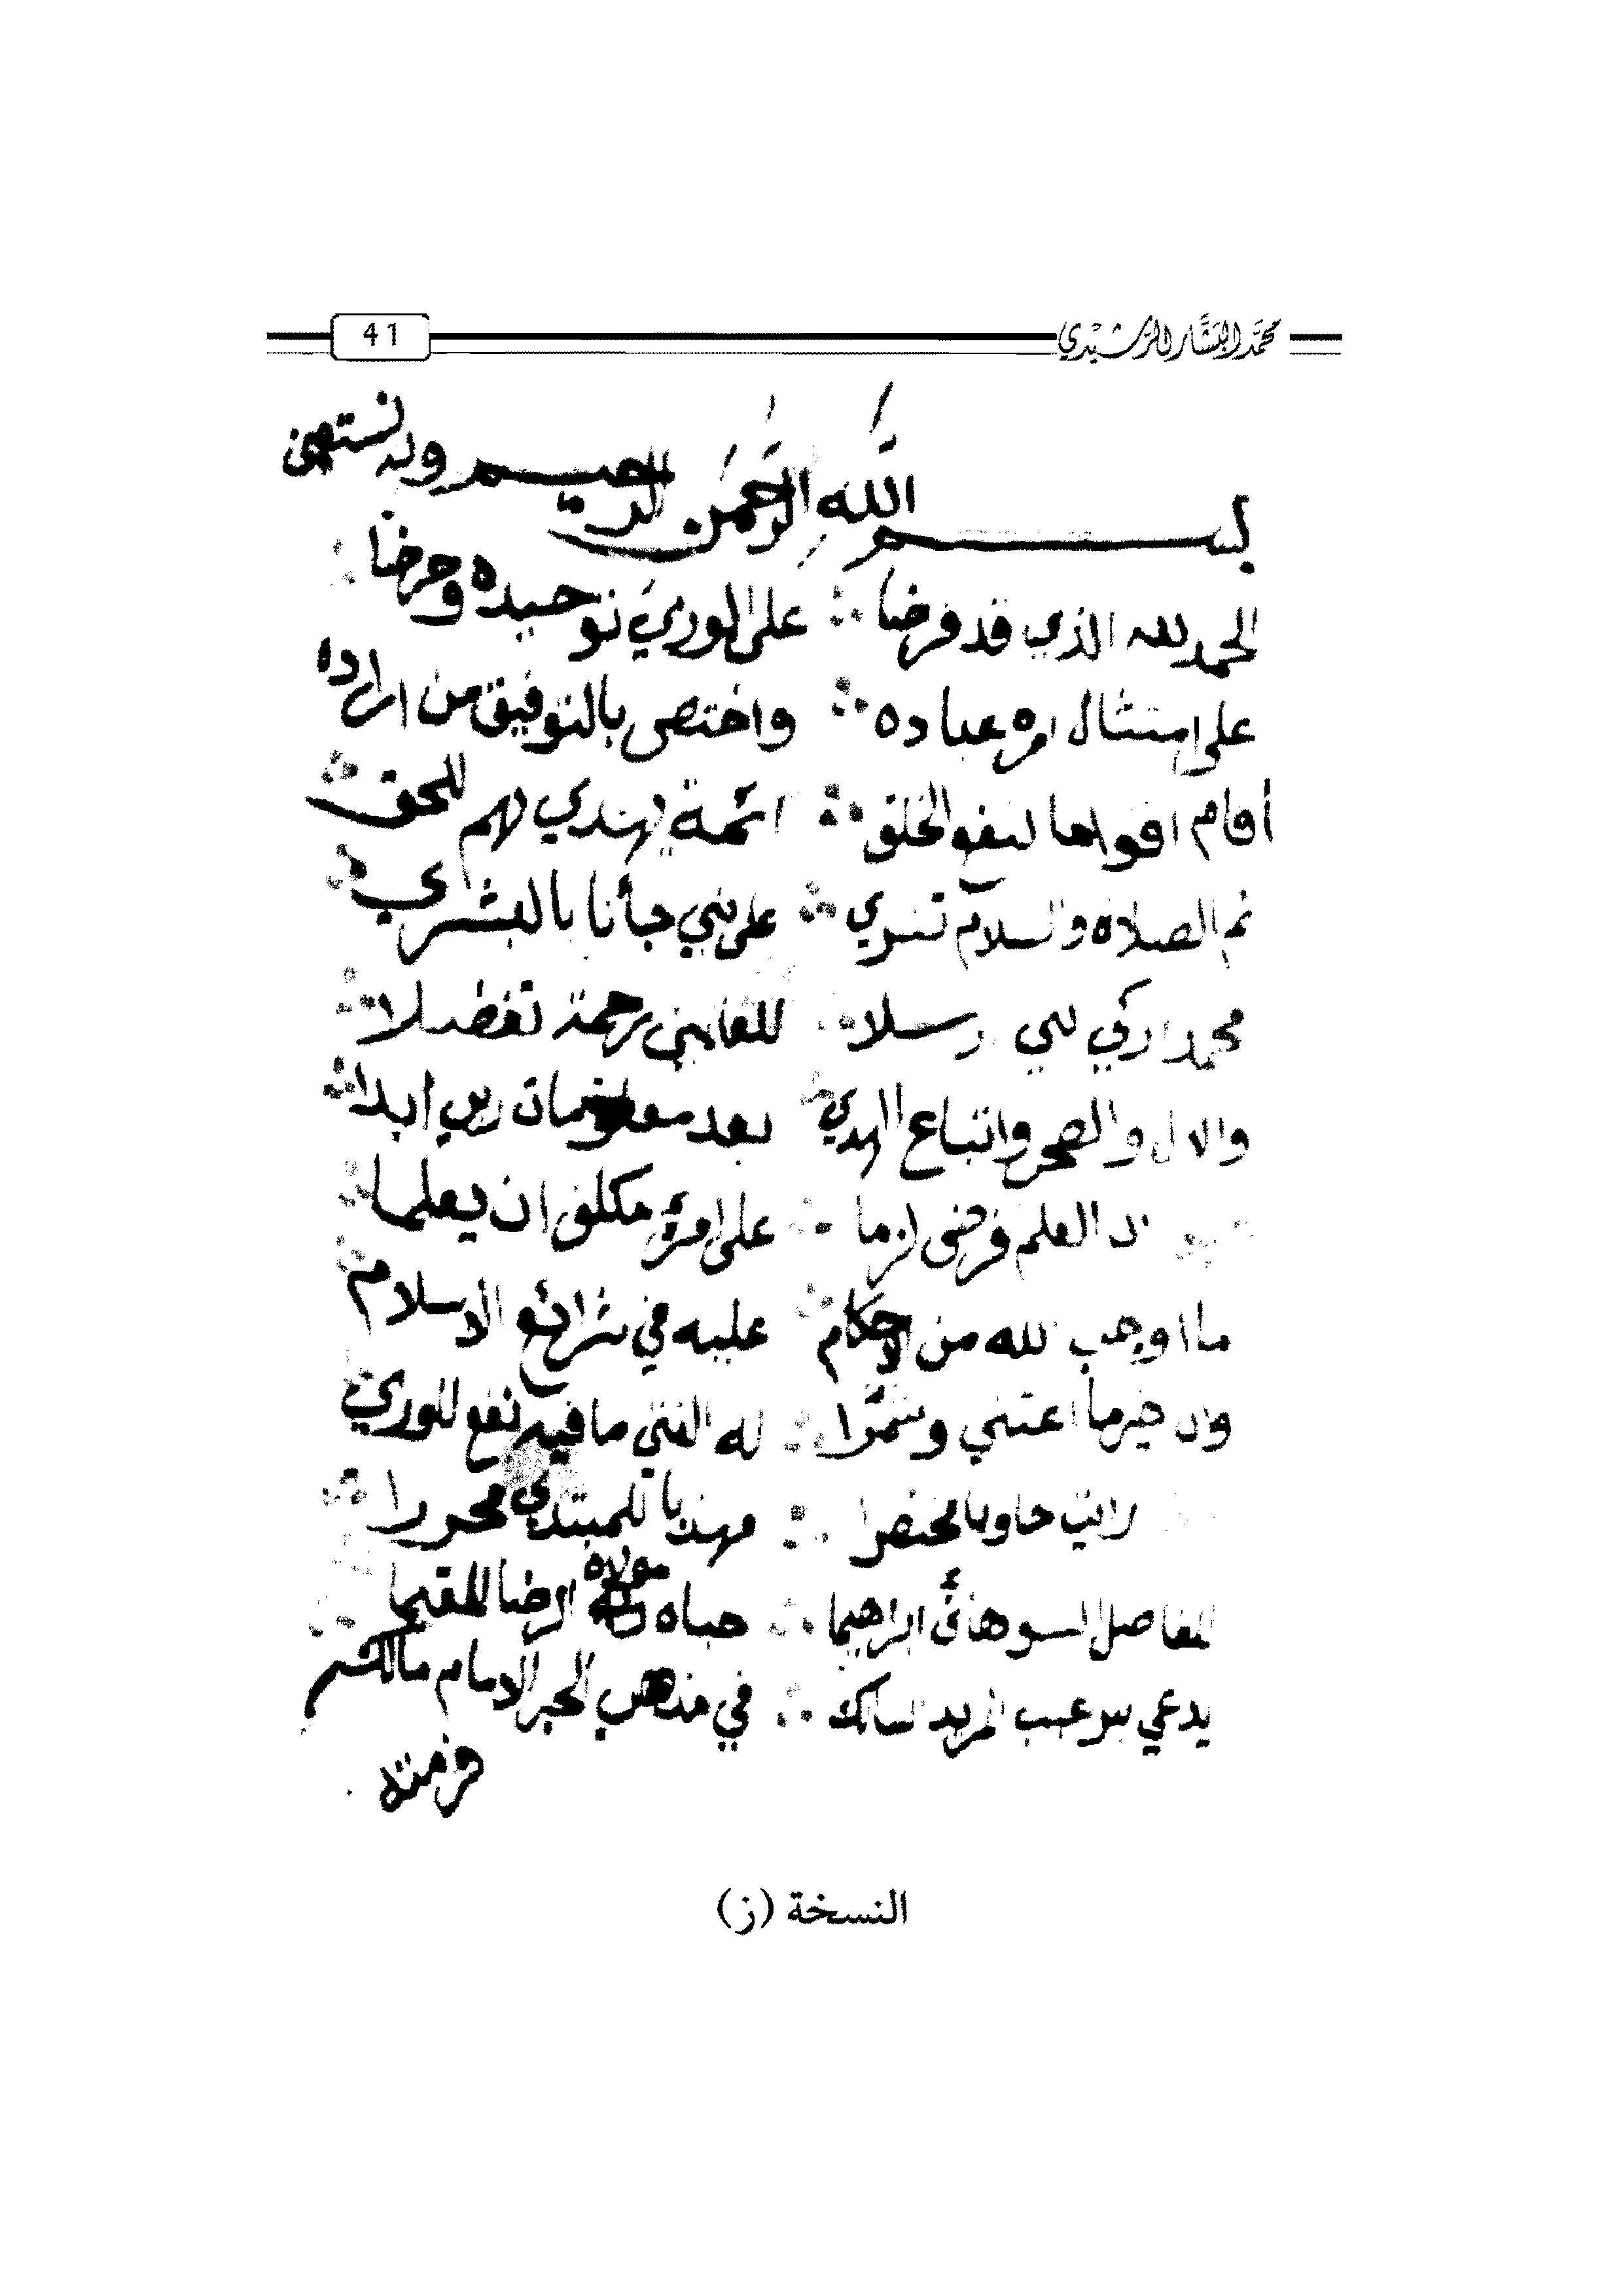 محمد البشار الرشيدي 41
بسم الله الرحمن الرحيم وبه نستعين
الحمد لله الذي قد فرضا على الوري توحيده وحرضا
على امتثال امره عباده واختص بالتوفيق من اراده
أقام اقواما لنفع الخلق ائمة يهدي بهم للحق
ثم الصلاة والسلام تتري على نبي جأنا بالبشري
محمد ازكي نبي رسلا للعالمين رحمة تفضلا
والال والصحب واتباع الهدي بعد معلومات ربي أبدا
ان العلم فرض لزما على امرئ مكلف ان يعلما
ما اوجب الله من الاحكام عليه في شرائع الاسلام
وان خير ما اعتني وشمرا له الفتي ما فيه نفع للوري
رايت حاويا مختصرا مهذبا للمبتدي محررا
للفاضل السوهائي ابراهيما حباه مولاه الرضا المقيما
يدعي بترغيب المريد السالك في مذهب الحبر الامام مالك
فرمته
النسخة (ز)